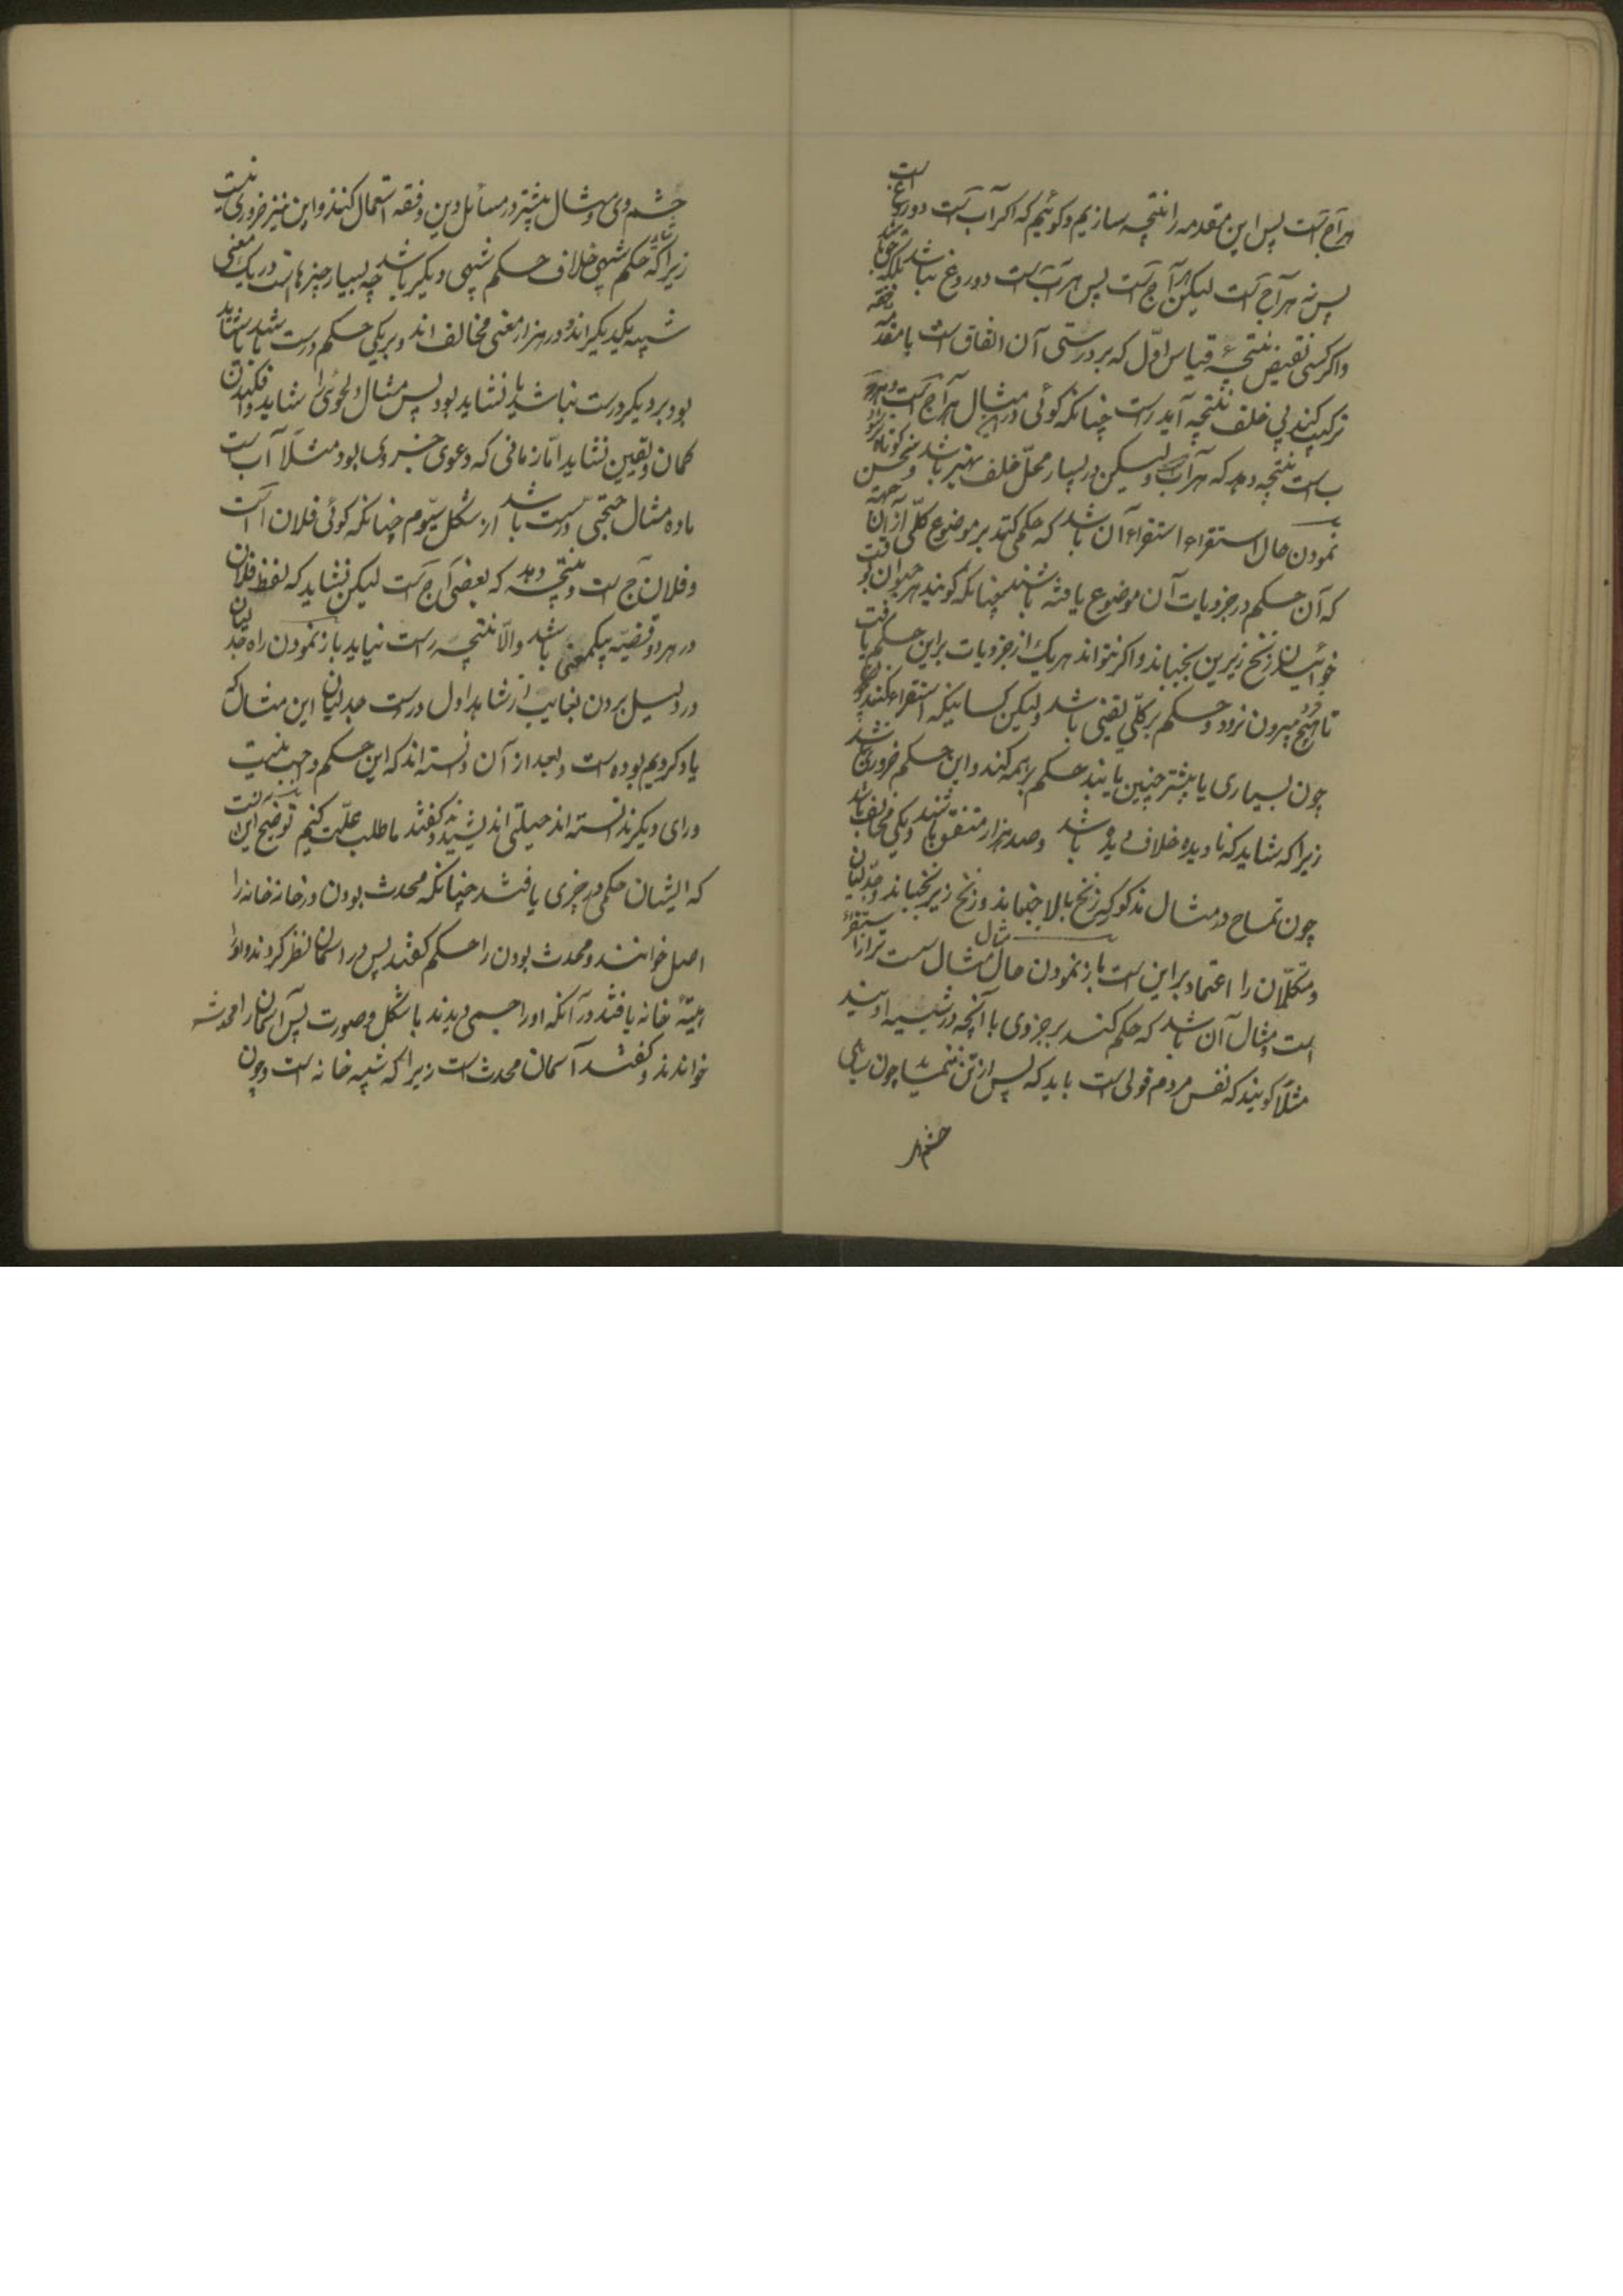 هر آ ج است پس این مقدمه را نتیجه سازیم و کوئیم که اکر آ ب است دوروغ است
پس نه هر آ ج است لیکن هر آ ج است پس هر آ ب است دوروغ نباشد بلکه
واکر کسی نقیض نتیجهء قیاس اوّل که بر درستی آن اتفاق است با مقدمه
ترکیب کند بی خلف نتیجه آید راست چنانکه کوئی در این مثال هر آ ج است و هر ج
ب است نتیجه دهد که هر آ ب ولیکن در بسیار محلّ خلف بهتر باشد و سخن کوتاه تر شود
نمودن حال استقراء استقراء آن باشد که حکمی کنند بر موضوع کلّی از آن جهة
که آن حکم در جزویات آن موضوع یافته باشند چنانکه کویند هر حیوان بوقت
خوائیدن زنخ زیرین بجنباند واکر بتواند هر یک از جزویات براین حکم یافت
تا هیچ بیرون نرود و حکم بر کلّی یقینی باشد ولیکن کسانیکه استقراء کنند
چون بسیاری یا بیشتر چنین یابند حکم بر همه کنند واین حکم ضروری نباشد
زیرا که شاید که نادیده خلاف دیده باشد و صد هزار متفق باشند و یکی مخالف باشد
چون تمساح در مثال مذکور که زنخ بالا جنباند و زنخ زیر نجنباند و جدلیان
ومتکلّمان را اعتماد براین است باز نمودن حال مثال مثال سست تر از استقراء
است ومثال آن باشد که حکم کنند بر جزوی با آنچه در شبیه او بینند
مثلاً کویند که نفس مردم قوتی است باید که پس از تن نماند چون بینائی
چشم را
چشم وی و مثال بیشتر در مسائل دین و فقه استعمال کنند واین نیز ضروری نیست
زیرا که شاید که حکم شبهی خلاف حکم شبهی دیکر باشد چه بسیار چیزهاست در یک معنی
شبیه یکدیکراند و در هزار معنی مخالف اند و بر یکی حکم درست باشد یا شاید
بود و بر دیکر درست نباشد یا نشاید بود پس مثال دلخوئی را شاید وافکندن
کمان و یقین نشاید امّا زمانی که دعوی جزوی بود مثلاً آ ب است
ماده مثال حجتی درست باشد از شکل سیّوم چنانکه کوئی فلان آ است
و فلان ج است ونتیجه دهد که بعضی آ ج است لیکن نشاید که لفظ فلان
در هر دو قضیّه بیکمعنی باشد والّا نتیجه راست نیاید باز نمودن راه جدلیان
در دلیل بردن بغایب از شاهد اول درست جدلیان این مثال که
یاد کردیم بوده است وبعد از آن دانسته اند که این حکم واجب نیست
ورای دیکر ندانسته اند حیلتی اندیشیده و کفتند ما طلب علّت کنیم توضیح این آنست
که ایشان حکمی در چیزی یافتند چنانکه محدث بودن در خانه خانه را
اصل خوانند و محدث بودن را حکم کفتند پس در آسمان نظر کردند واو را
شبیه خانه یافتند در آنکه او را جسمی دیدند با شکل و صورت پس آسمان را محدث
خواندند و کفتند آسمان محدث است زیرا که شبیه خانه است و چون